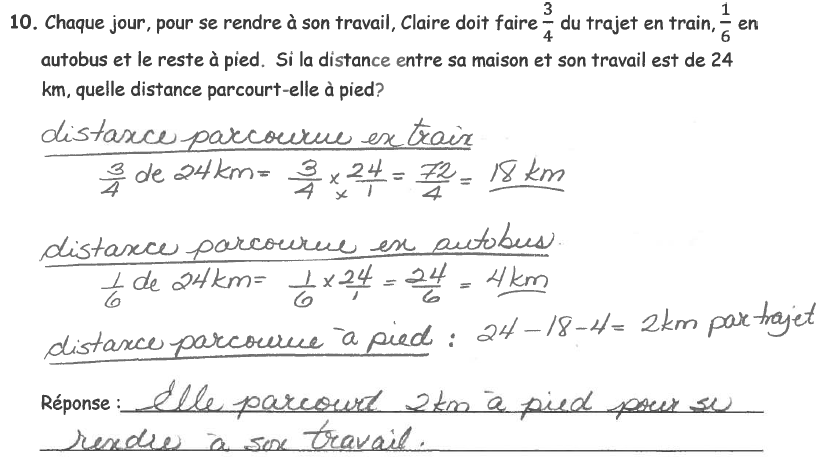 10. Chaque jour, pour se rendre à son travail, Claire doit faire 3/4 du trajet en train, 1/6 en
autobus et le reste à pied. Si la distance entre sa maison et son travail est de 24
km, quelle distance parcourt-elle à pied?
distance parcourue en train
3/4 de 24km = 3/4 x 24/1 = 72/4 = 18 km
distance parcourue en autobus.
1/6 de 24km = 1/6 x 24/1 = 24/6 = 4km
distance parcourue à pied : 24 - 18 - 4 = 2km par trajet
Réponse : Elle parcourt 2km à pied pour se
rendre à son travail.